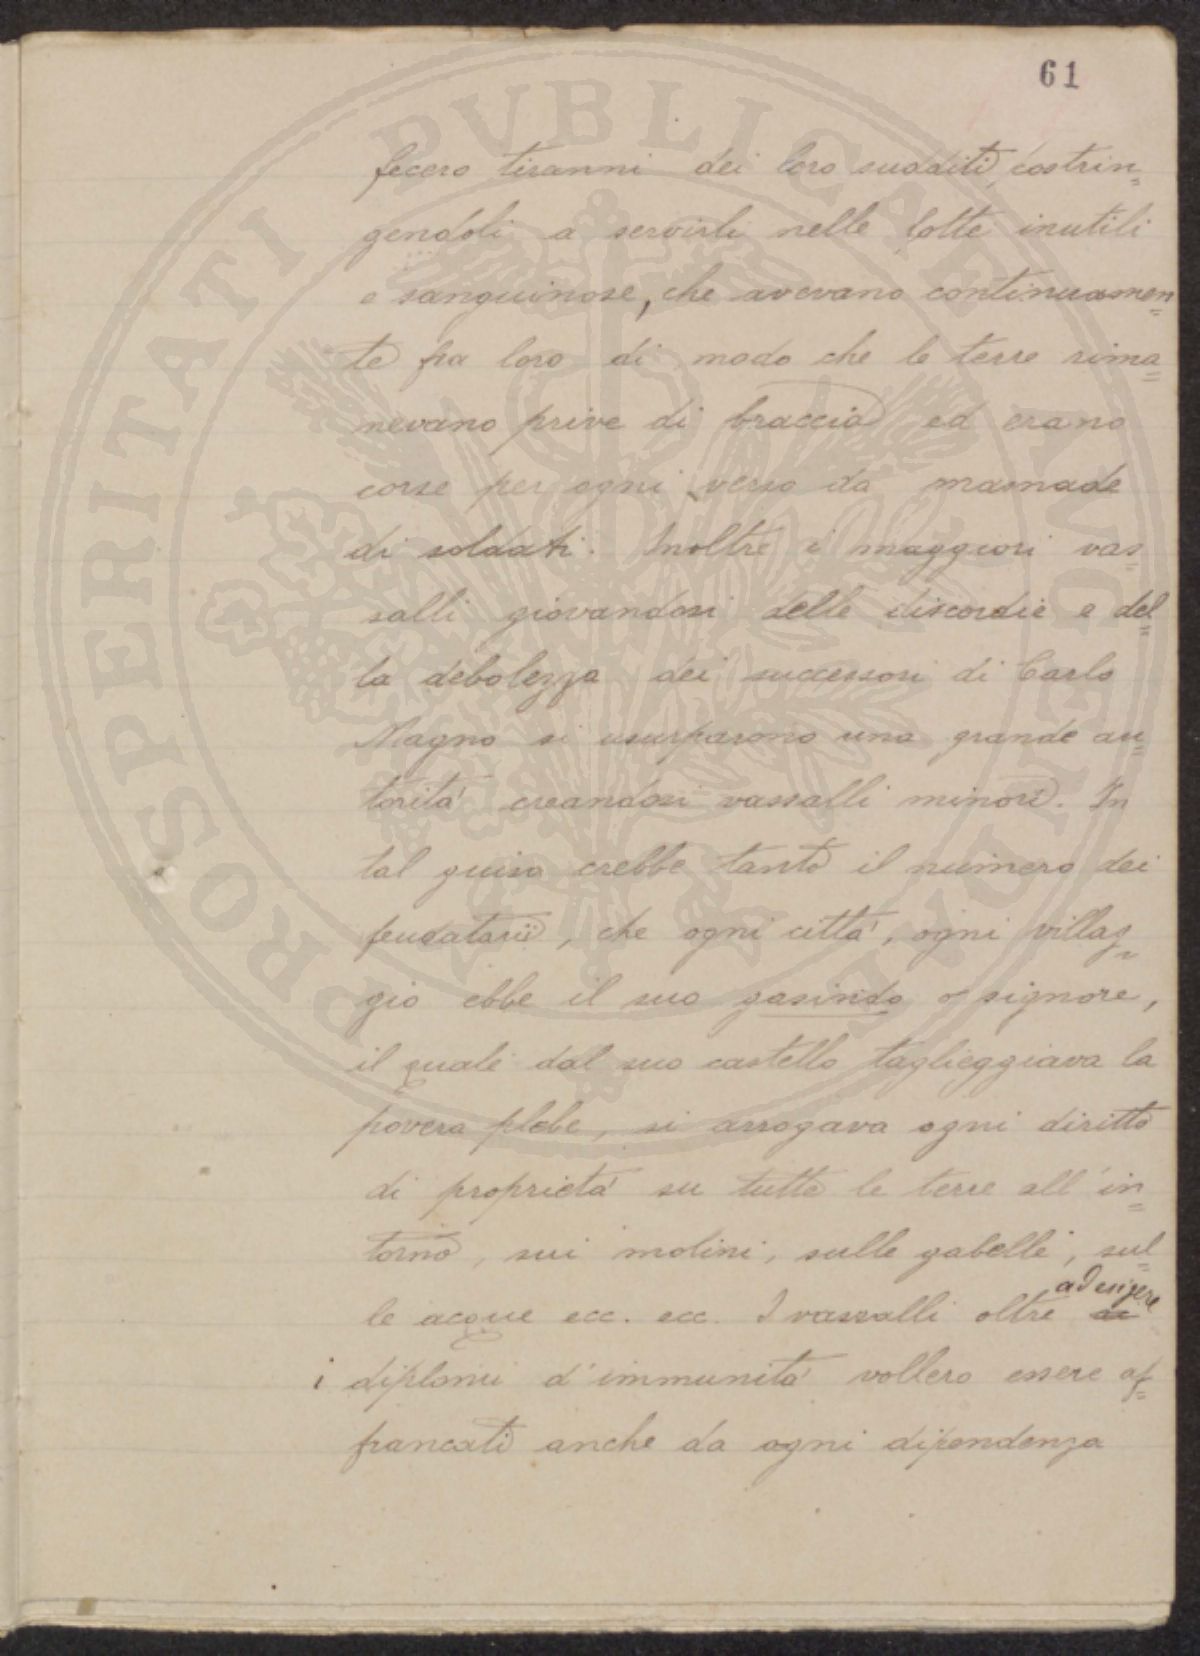 61
fecero tiranni dei loro sudditi, costrin=
gendoli a servirli nelle lotte inutili
e sanguinose, che avevano continuamen=
te fra loro di modo che le terre rima=
nevano prive di braccia ed erano
corse per ogni verso da masnade
di soldati. Inoltre i maggiori vas=
salli giovandosi delle discordie e del=
la debolezza dei successori di Carlo
Magno si usurparono una grande au=
torità creandosi vassalli minori. In
tal guisa crebbe tanto il numero dei
feudatarii, che ogni città, ogni villag=
gio ebbe il suo gasindo o signore,
il quale dal suo castello taglieggiava la
povera plebe, si arrogava ogni diritto
di proprietà su tutte le terre all'in=
torno, sui molini, sulle gabelle, sul=
ad esigere
le acque ecc. ecc. I vassalli oltre ai
i diplomi d'immunità vollero essere af=
francati anche da ogni dipendenza
PROSPERITATI PVBLICAE AVGENDAE